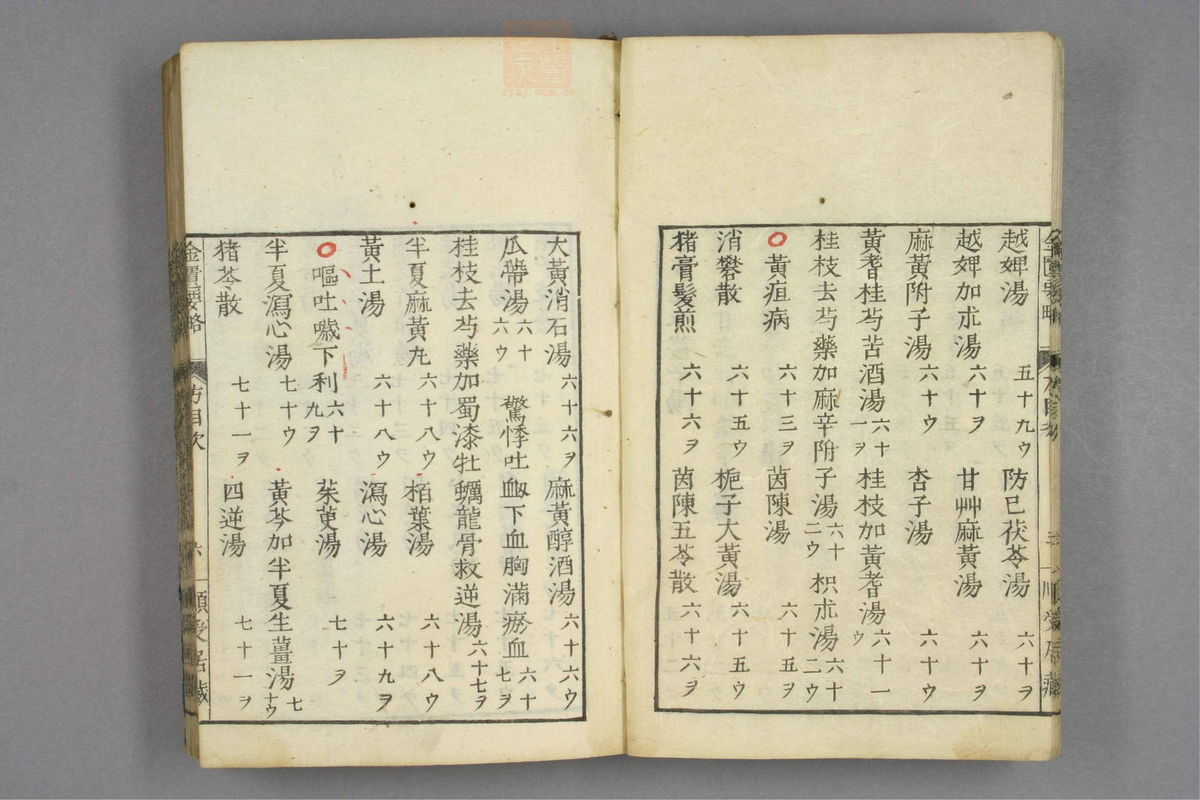 越婢湯 五十九ウ 防已茯苓湯 六十ヲ
越婢加朮湯 六十ヲ 甘艸麻黃湯 六十ヲ
麻黃附子湯 六十ウ 杏子湯 六十ウ
黃耆桂芍苦酒湯 六十一ヲ 桂枝加黃耆湯 六十一ウ
桂枝去芍藥加麻辛附子湯 六十二ウ 枳朮湯 六十二ウ
黃疸病 六十三ヲ 茵陳湯 六十五ヲ
消礬散 六十五ウ 梔子大黃湯 六十五ウ
猪膏髮煎 六十六ヲ 茵陳五苓散 六十六ヲ
大黃消石湯 六十六ヲ 麻黃醇酒湯 六十六ウ
瓜蔕湯 六十六ウ 驚悸吐衂下血胸滿瘀血 六十七ヲ
桂枝去芍藥加蜀漆牡蠣龍骨救逆湯 六十七ヲ
半夏麻黃丸 六十八ウ 栢葉湯 六十八ウ
黃土湯 六十八ウ 瀉心湯 六十九ヲ
嘔吐噦下利 六十九ヲ 茱萸湯 七十ヲ
半夏瀉心湯 七十ウ 黃芩加半夏生薑湯 七十ウ
猪苓散 七十一ヲ 四逆湯 七十一ヲ
金匱要略 方目次 六 順受居藏